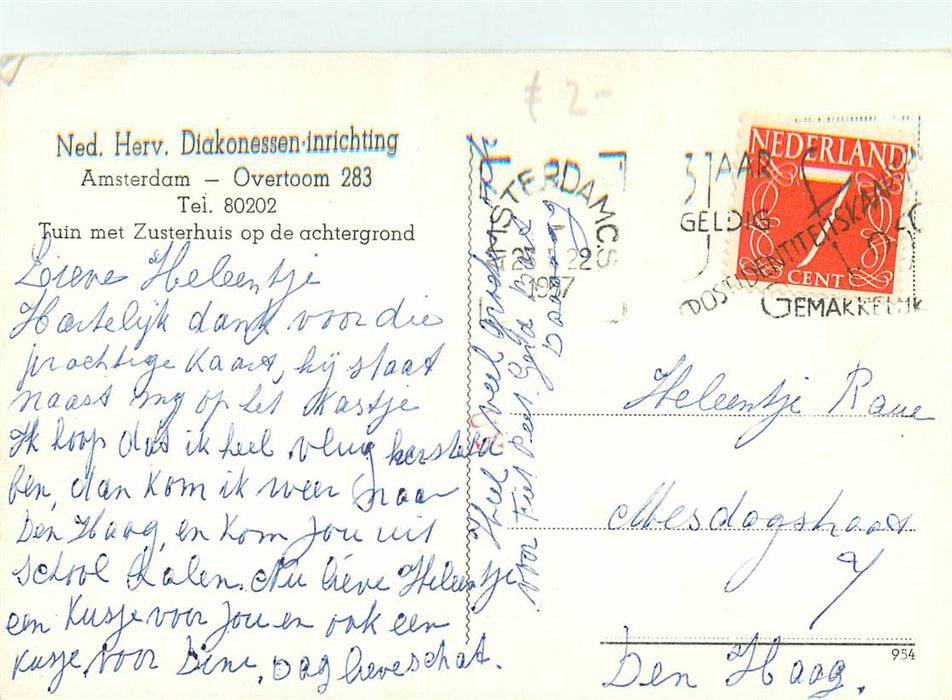 € 2-
Ned. Herv. Diakonessen-inrichting
Amsterdam — Overtoom 283
Tel. 80202
Tuin met Zusterhuis op de achtergrond
Lieve Heleentje
Hartelijk dank voor die
prachtige kaart, hij staat
naast mij op het kastje
Ik hoop dat ik heel vlug hersteld
ben, dan kom ik weer naar
Den Haag, en kom jou uit
school halen. Nu lieve Heleentje
een kusje voor jou en ook een
kusje voor Dine, dag lieve schat.
Heel veel groetjes
voor
AMSTERDAM C.S.
1957
3 JAAR
GELDIG
POSTIDENTITEITSKAART
GEMAKKELIJK
NEDERLAND
7
CENT
Heleentje Raue
Mesdagstraat
Den Haag.
954